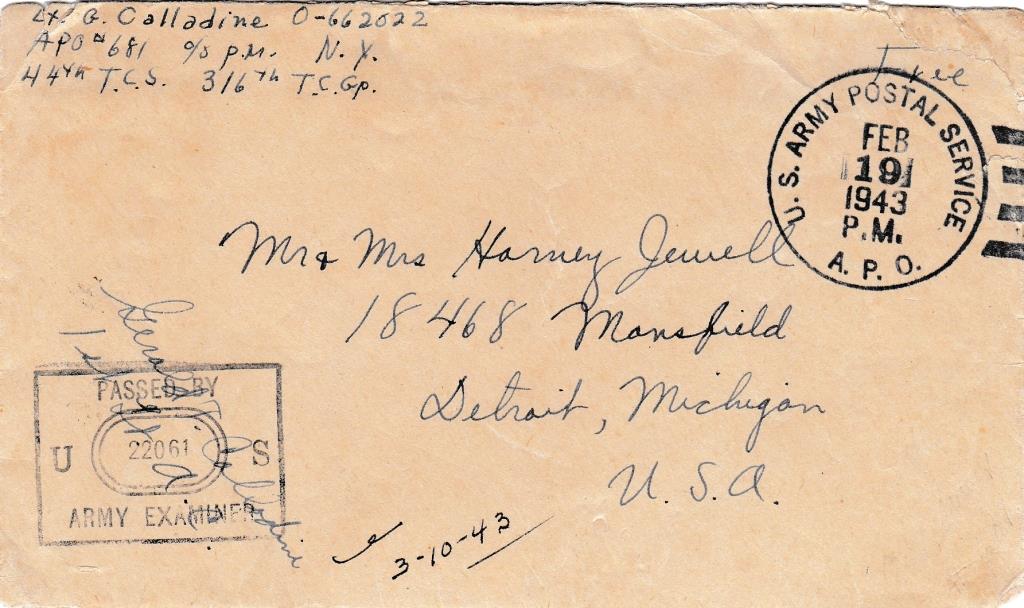 Lt. G. Calladine O-662022
APO #681 c/o P.M. N.Y.
44th T.C.S. 316th T.C.Gp.
Free
U.S. ARMY POSTAL SERVICE
FEB
19
1943
P.M.
A.P.O.
Mr & Mrs Harvey Jewell
18468 Mansfield
Detroit, Michigan
U.S.A.
PASSED BY
U 22061 S
ARMY EXAMINER
Gerald Calladine
3-10-43